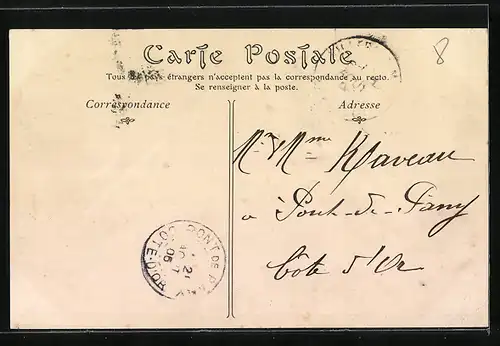 Carte Postale
Tous les pays étrangers n'acceptent pas la correspondance au recto.
Se renseigner à la poste.
8
Correspondance
Adresse
Mr & Mme Raveau
à Pont-de-Pany
Côte d'Or
PONT DE PANY
21
06
CÔTE-D'OR